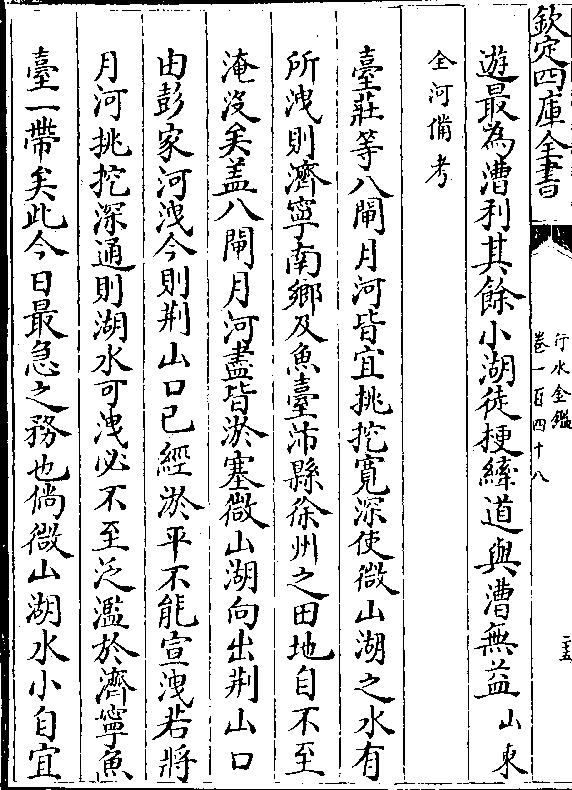 欽定四庫全書
行水金鑑
卷一百四十八
二五
遊最為漕利其餘小湖徒梗縴道與漕無益山東
全河備考
臺莊等八閘月河皆宜挑挖寬深使微山湖之水有
所洩則濟寧南鄉及魚臺沛縣徐州之田地自不至
淹沒矣葢八閘月河盡皆淤塞微山湖向出荆山口
由彭家河洩今則荆山口已經淤平不能宣洩若將
月河挑挖深通則湖水可洩必不至泛濫於濟寧魚
臺一帶矣此今日最急之務也倘微山湖水小自宜